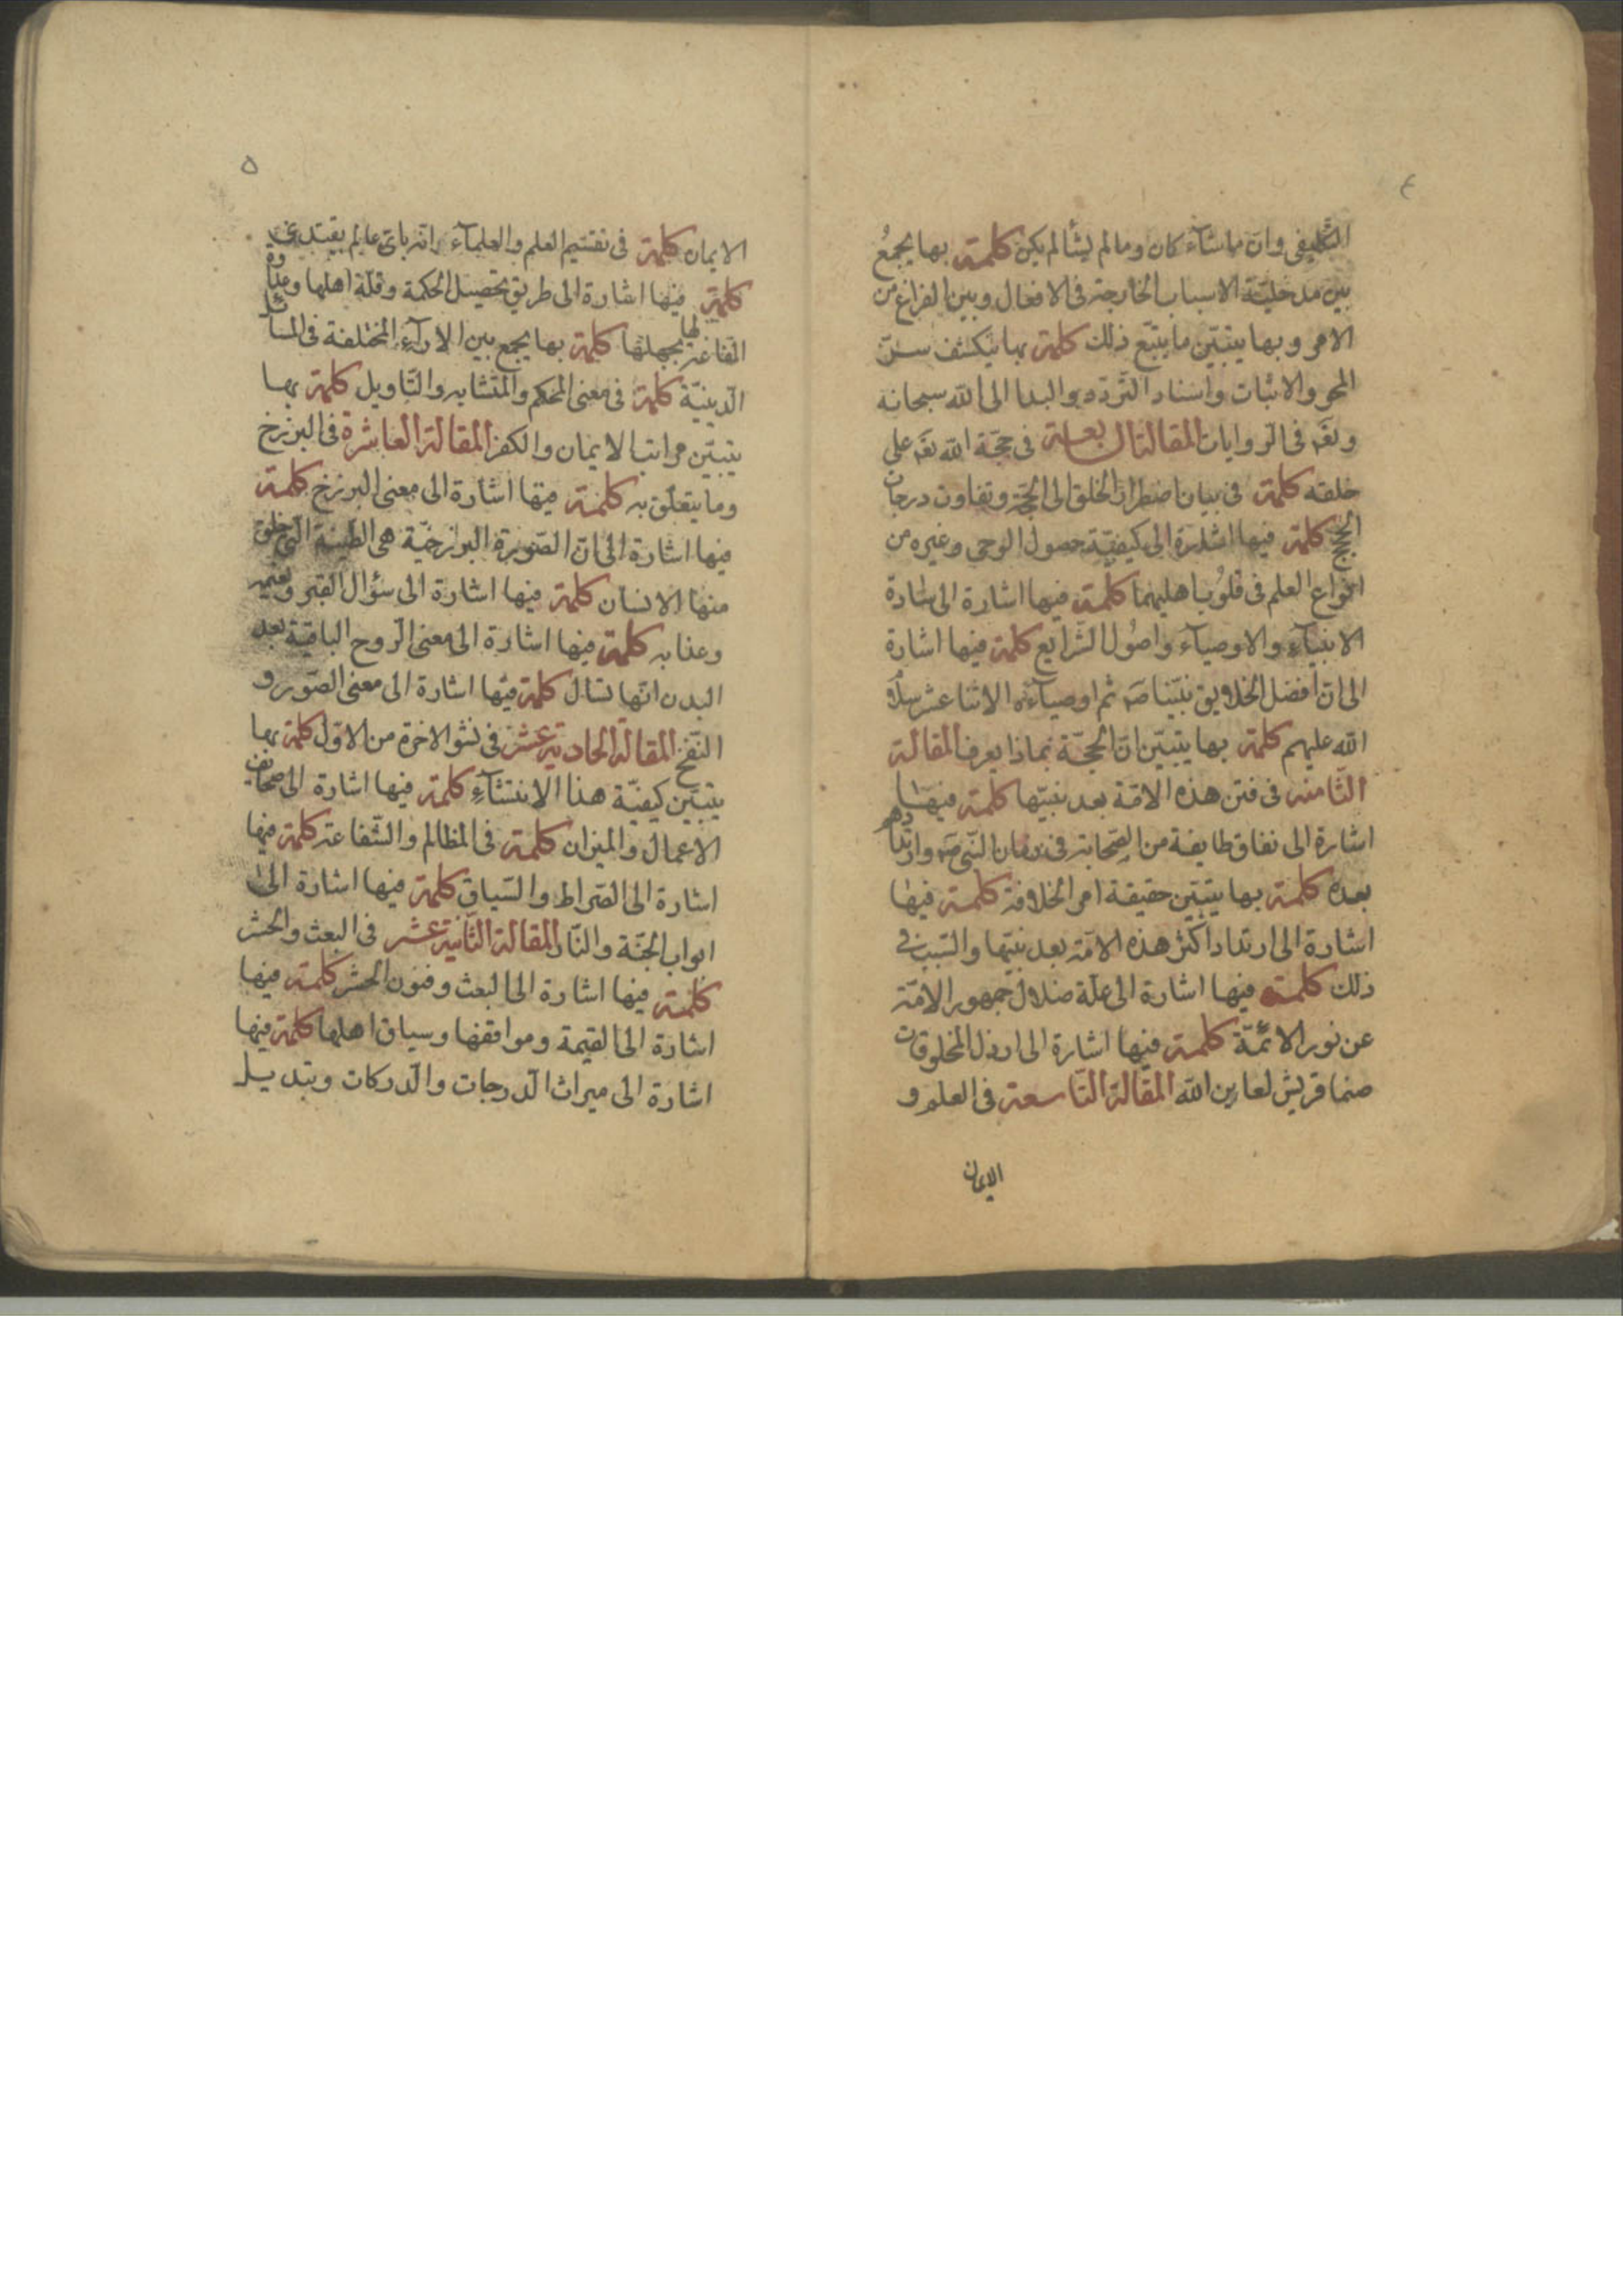 ٤
التكليفى وان ما شآء كان وما لم يشأ لم يكن كلمة بها يجمع
بين مدخليّة الاسباب الخارجة فى الافعال وبين الفراغ من
الامر وبها يتبيّن ما يتبع ذلك كلمة بها ينكشف سرّ
المحو والاثبات واسناد التردّد والبدا الى الله سبحانه
وتعَ فى الروايات المقالة السابعة فى حجّة الله تعَ على
خلقه كلمة فى بيان اضطرار الخلق الى الحجّة وتفاوت درجات
الحجج كلمة فيها اشارة الى كيفيّة حصول الوحى وغيره من
انواع العلم فى قلوب اهليهما كلمة فيها اشارة الى سادة
الانبيآء والاوصيآء واصُول الشرايع كلمة فيها اشارة
الى انّ افضل الخلايق نبيّنا صَ ثم اوصيآءه الاثنا عشر سلام
الله عليهم كلمة بها يتبيّن انّ الحجّة بماذا يعرف المقالة
الثّامنة فى فتن هذه الامّة بعد نبيّها كلمة فيها
اشارة الى نفاق طايفة من الصّحابة فى زمان النّبى صَ وارتدادهم
بعده كلمة بها يتبيّن حقيقة امر الخلافة كلمة فيها
اشارة الى ارتداد اكثر هذه الامّة بعد نبيّها والسّبب فى
ذلك كلمة فيها اشارة الى علّة ضلال جمهور الامّة
عن نور الائمّة كلمة فيها اشارة الى ارذل المخلوقات
صنما قريش لعاين الله المقالة التّاسعة فى العلم و
الايمان
٥
الايمان كلمة فى تقسيم العلم والعلمآء وانه باى عالم يقتدى
كلمة فيها اشارة الى طريق تحصيل الحكمة وقلّة اهلها وعداوة
القاغة لها بجهلها كلمة بها يجمع بين الارآء المختلفة فى المسائل
الدّينيّة كلمة فى معنى المحكم والمتشابه والتّاويل كلمة بها
يتبيّن مراتب الايمان والكفر المقالة العاشرة فى البرزخ
وما يتعلّق به كلمة فيها اشارة الى معنى البرزخ كلمة
فيها اشارة الى انّ الصّورة البرزخيّة هى الطّينة التى خلق
منها الانسان كلمة فيها اشارة الى سؤال القبر ونعيمه
وعذابه كلمة فيها اشارة الى معنى الروح الباقية بعد
البدن انّها تسال كلمة فيها اشارة الى معنى الصّور و
النّفخ المقالة الحادية عشر فى نشو الاخرة من الاوّل كلمة بها
يتبيّن كيفيّة هذا الانتشآء كلمة فيها اشارة الى صحايف
الاعمال والميزان كلمة فى المظالم والشّفاعة كلمة فيها
اشارة الى الصّراط والسّياق كلمة فيها اشارة الى
ابواب الجنّة والنّار المقالة الثّانية عشر فى البعث والحشر
كلمة فيها اشارة الى البعث وفنون الحشر كلمة فيها
اشارة الى القيمة ومواقفها وسياق اهلها كلمة فيها
اشارة الى ميراث الدّرجات والدّركات وتبديل